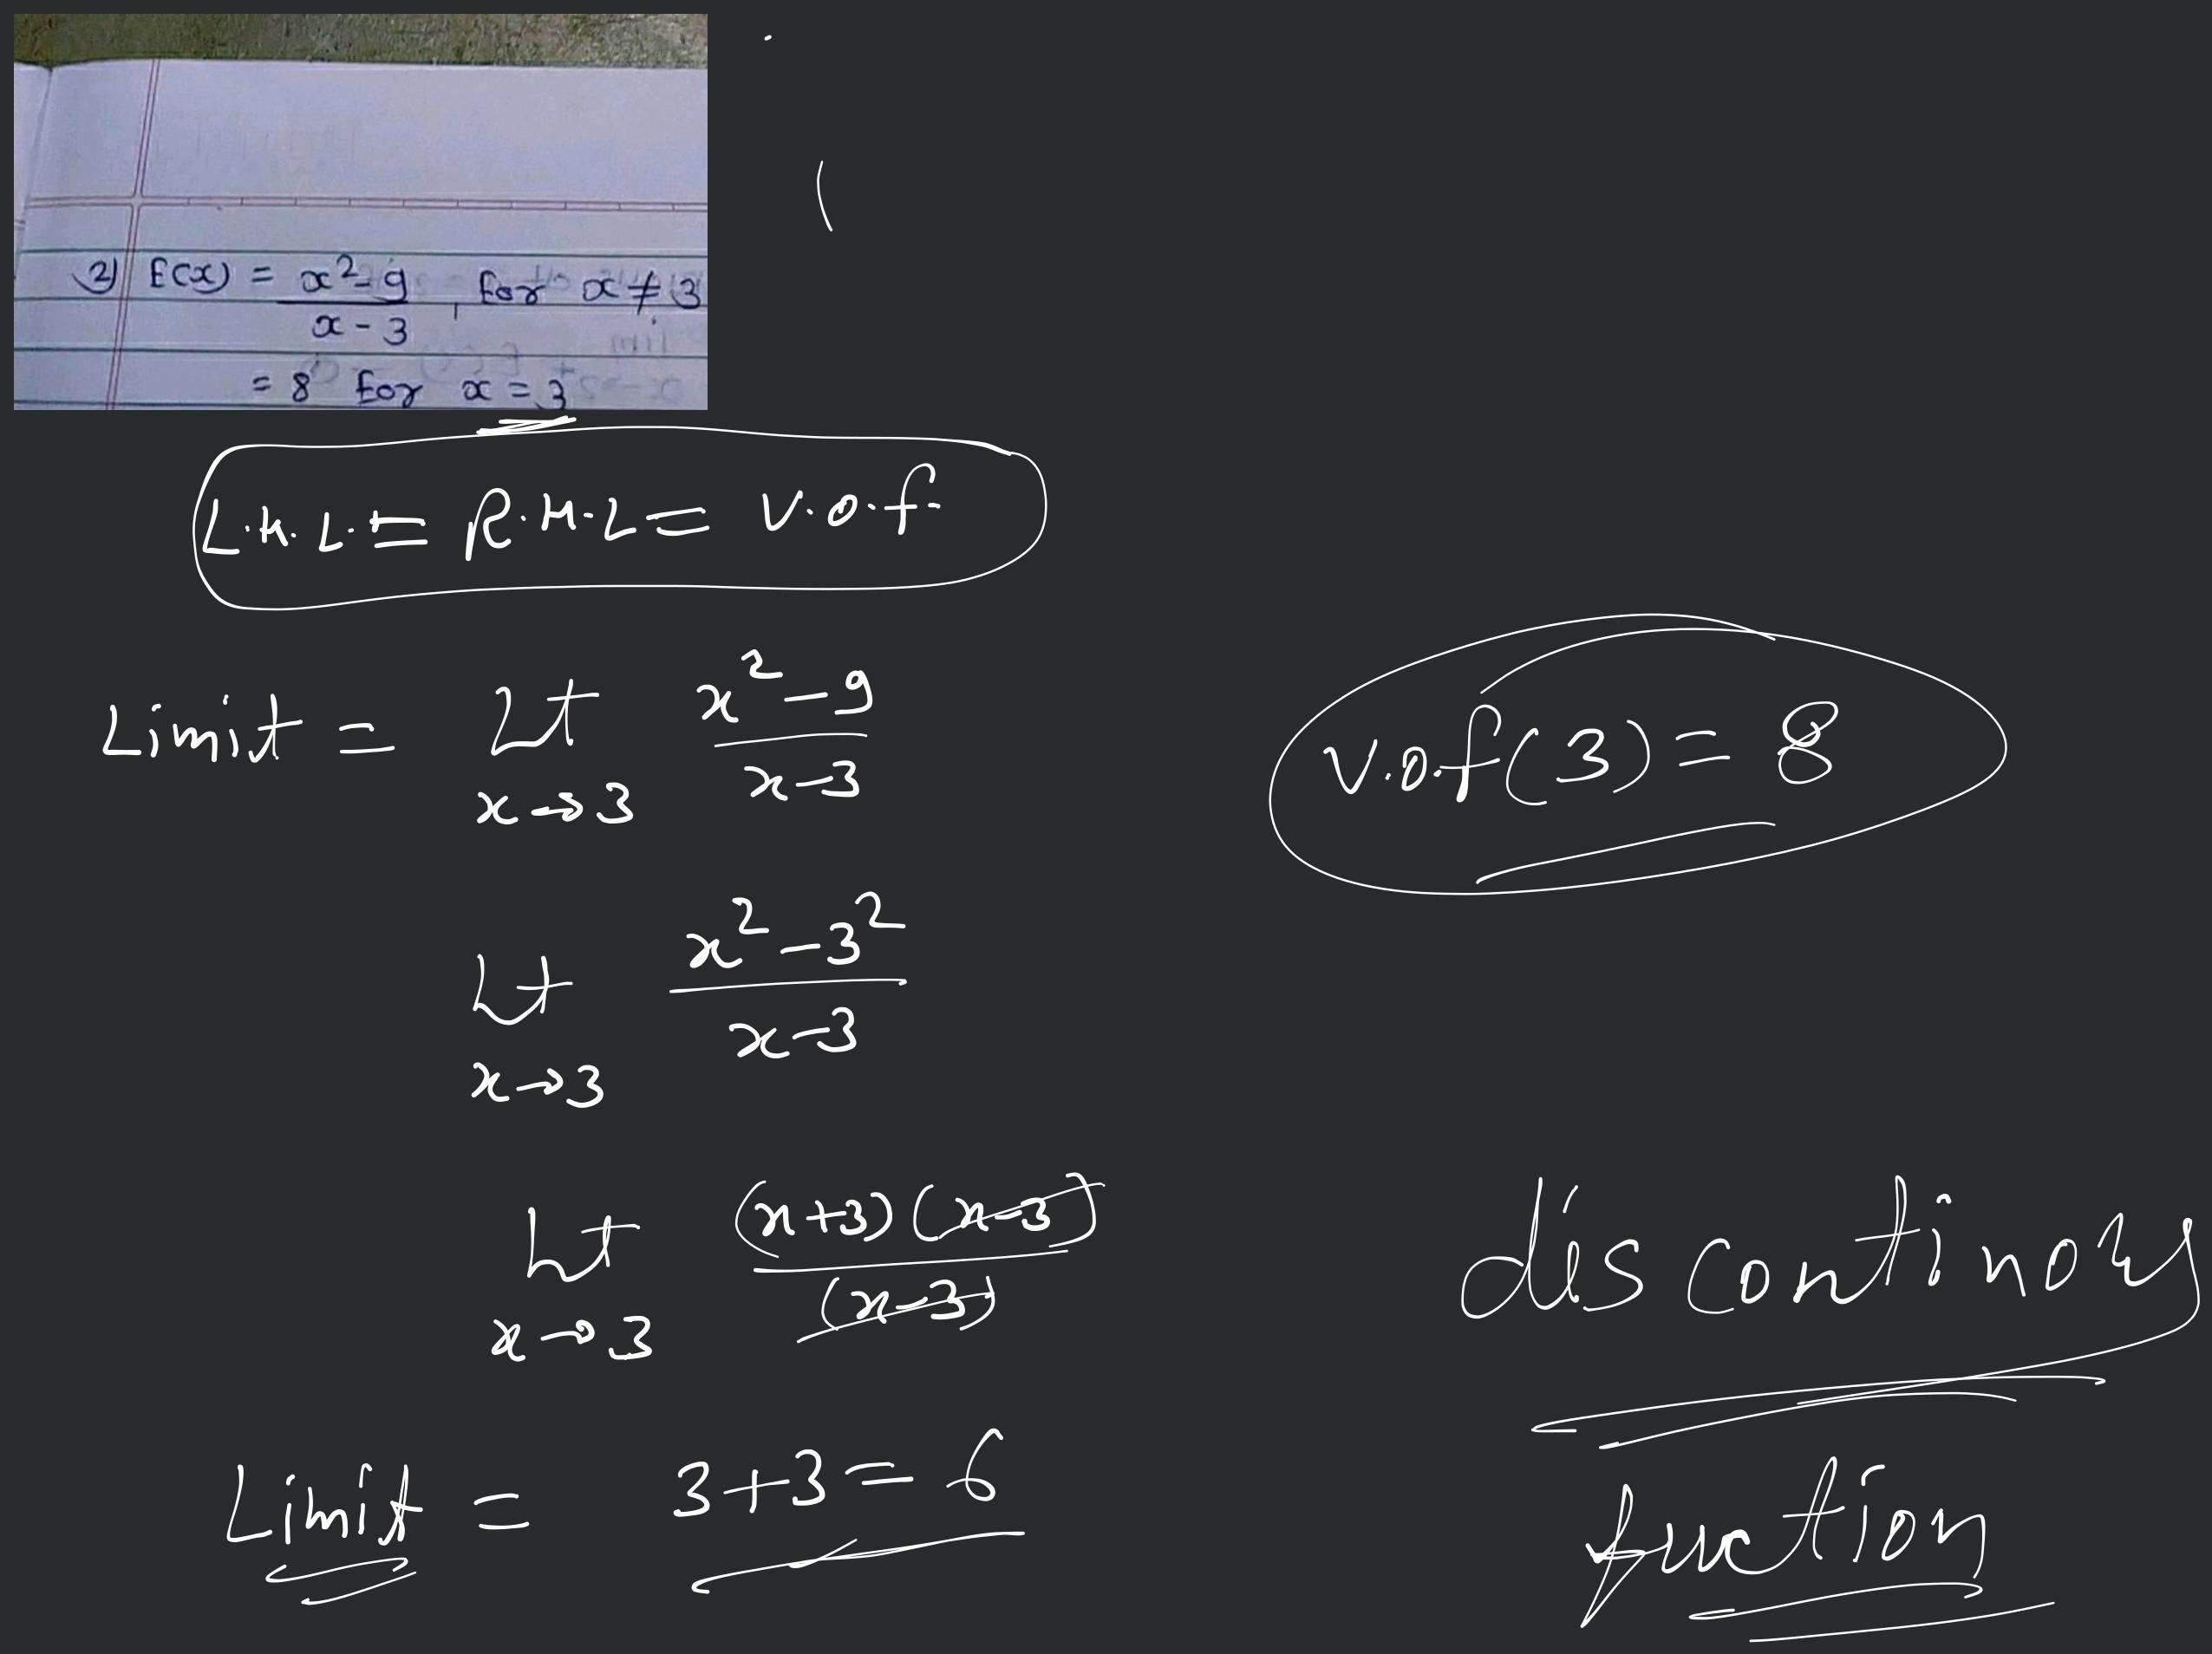 2) f(x) = x² - 9 / x - 3 , for x ≠ 3
= 8 for x = 3
L.H.L. = R.H.L = V.O.f.
Limit = Lt x→3 x² - 9 / x - 3
V.O.f(3) = 8
Lt x→3 x² - 3² / x - 3
Lt x→3 (x+3) (x-3) / (x-3)
discontinous
Limit = 3+3 = 6
fuction